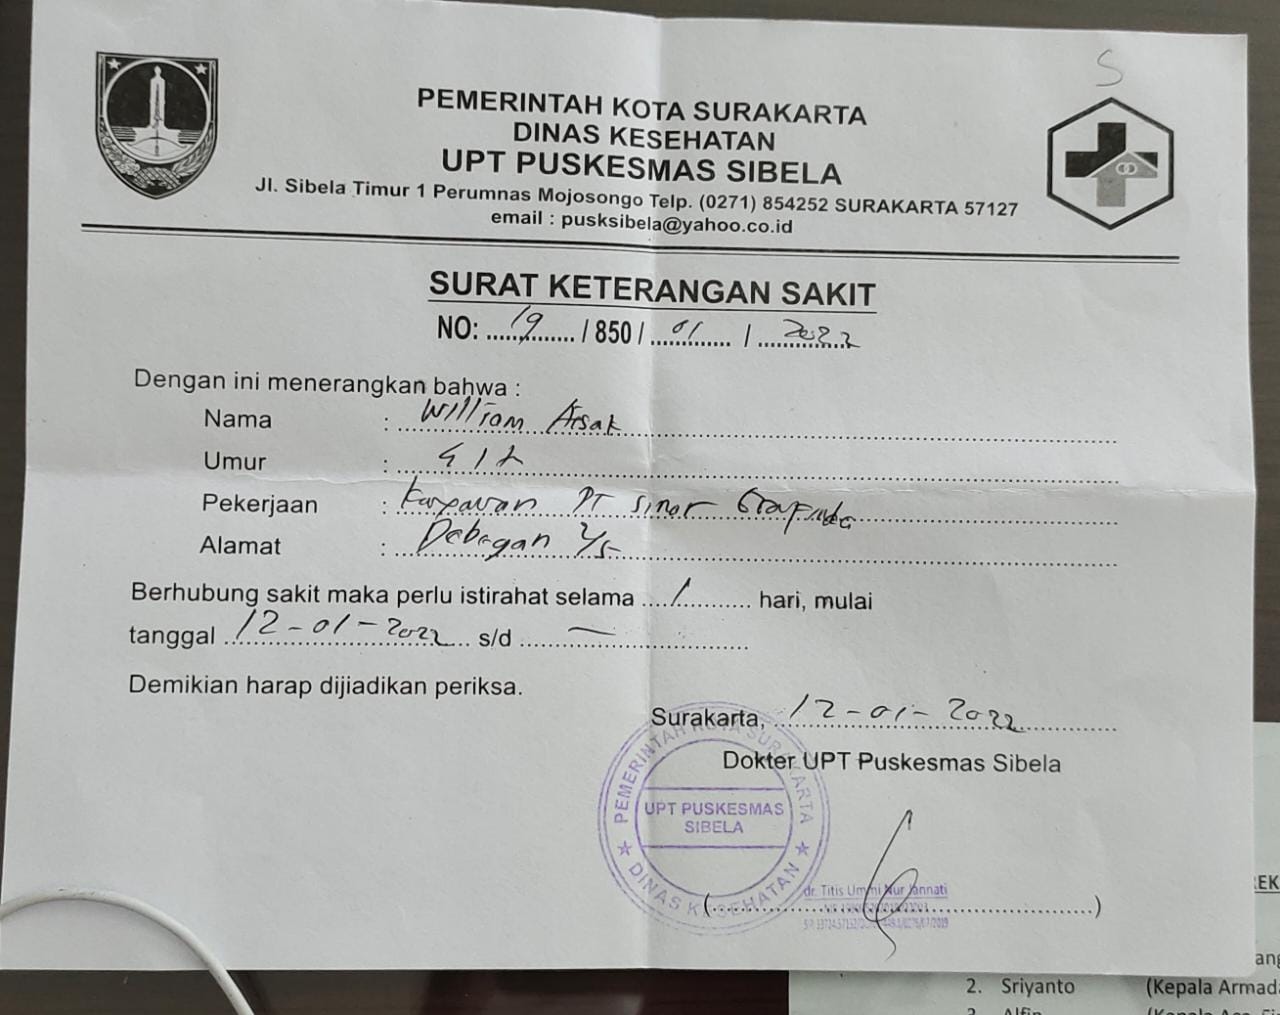 S
PEMERINTAH KOTA SURAKARTA
DINAS KESEHATAN
UPT PUSKESMAS SIBELA
Jl. Sibela Timur 1 Perumnas Mojosongo Telp. (0271) 854252 SURAKARTA 57127
email : pusksibela@yahoo.co.id
SURAT KETERANGAN SAKIT
NO: 19 / 850 / 01 / 2022
Dengan ini menerangkan bahwa :
Nama : William Arsak
Umur :
Pekerjaan : Karyawan PT Sinar
Alamat : Debegan 2/5
Berhubung sakit maka perlu istirahat selama 1 hari, mulai
tanggal 12-01-2022 s/d —
Demikian harap dijiadikan periksa.
Surakarta, 12-01-2022
Dokter UPT Puskesmas Sibela
PEMERINTAH KOTA SURAKARTA
UPT PUSKESMAS
SIBELA
DINAS KESEHATAN
dr. Titis Ummi Nur Jannati
2. Sriyanto (Kepala Armada
3. Alfin